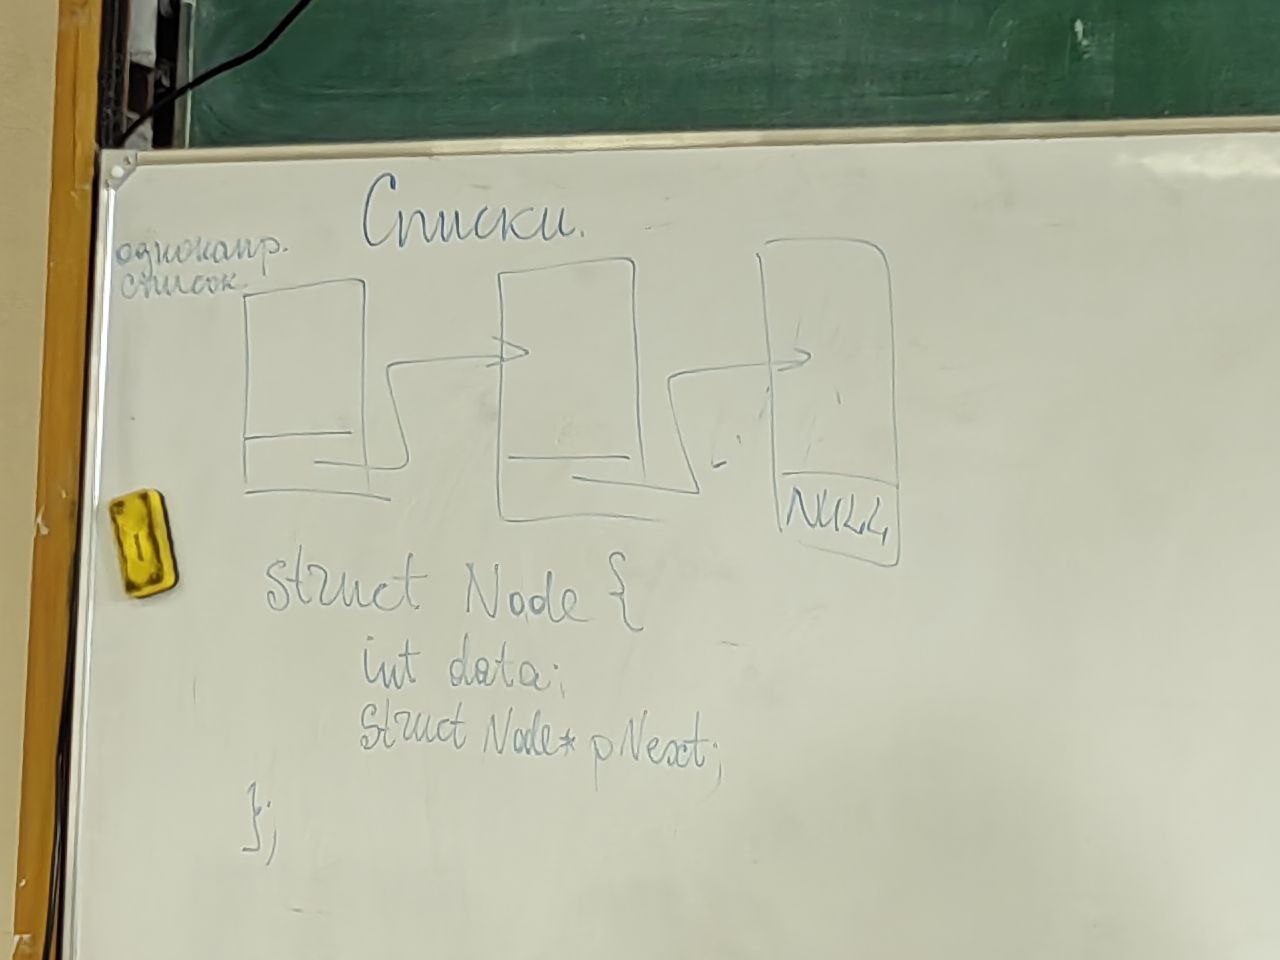 Списки.
однонапр.
список
NULL
struct Node {
int data;
struct Node* pNext;
};